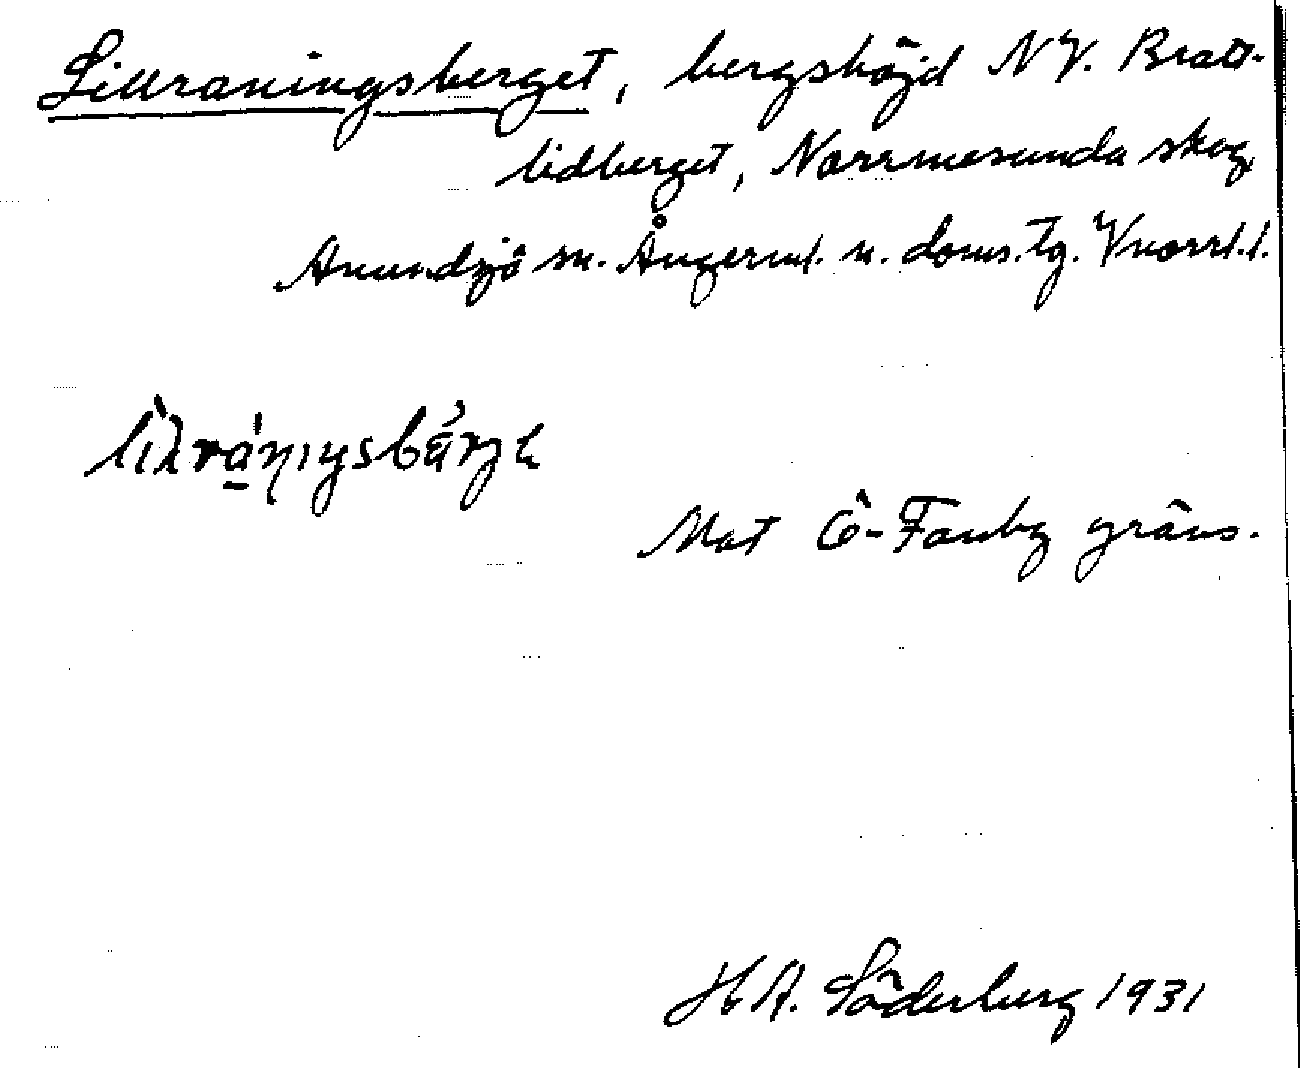 Lillraningsberget, bergshöjd NV. Bratt-
lidberget, Norrmesunda skog,
Anundsjö sn. Ångerml. n. doms. tg. Vnorrl. l.
Mot Ö-Fanbg gräns.
H A. Söderberg 1931